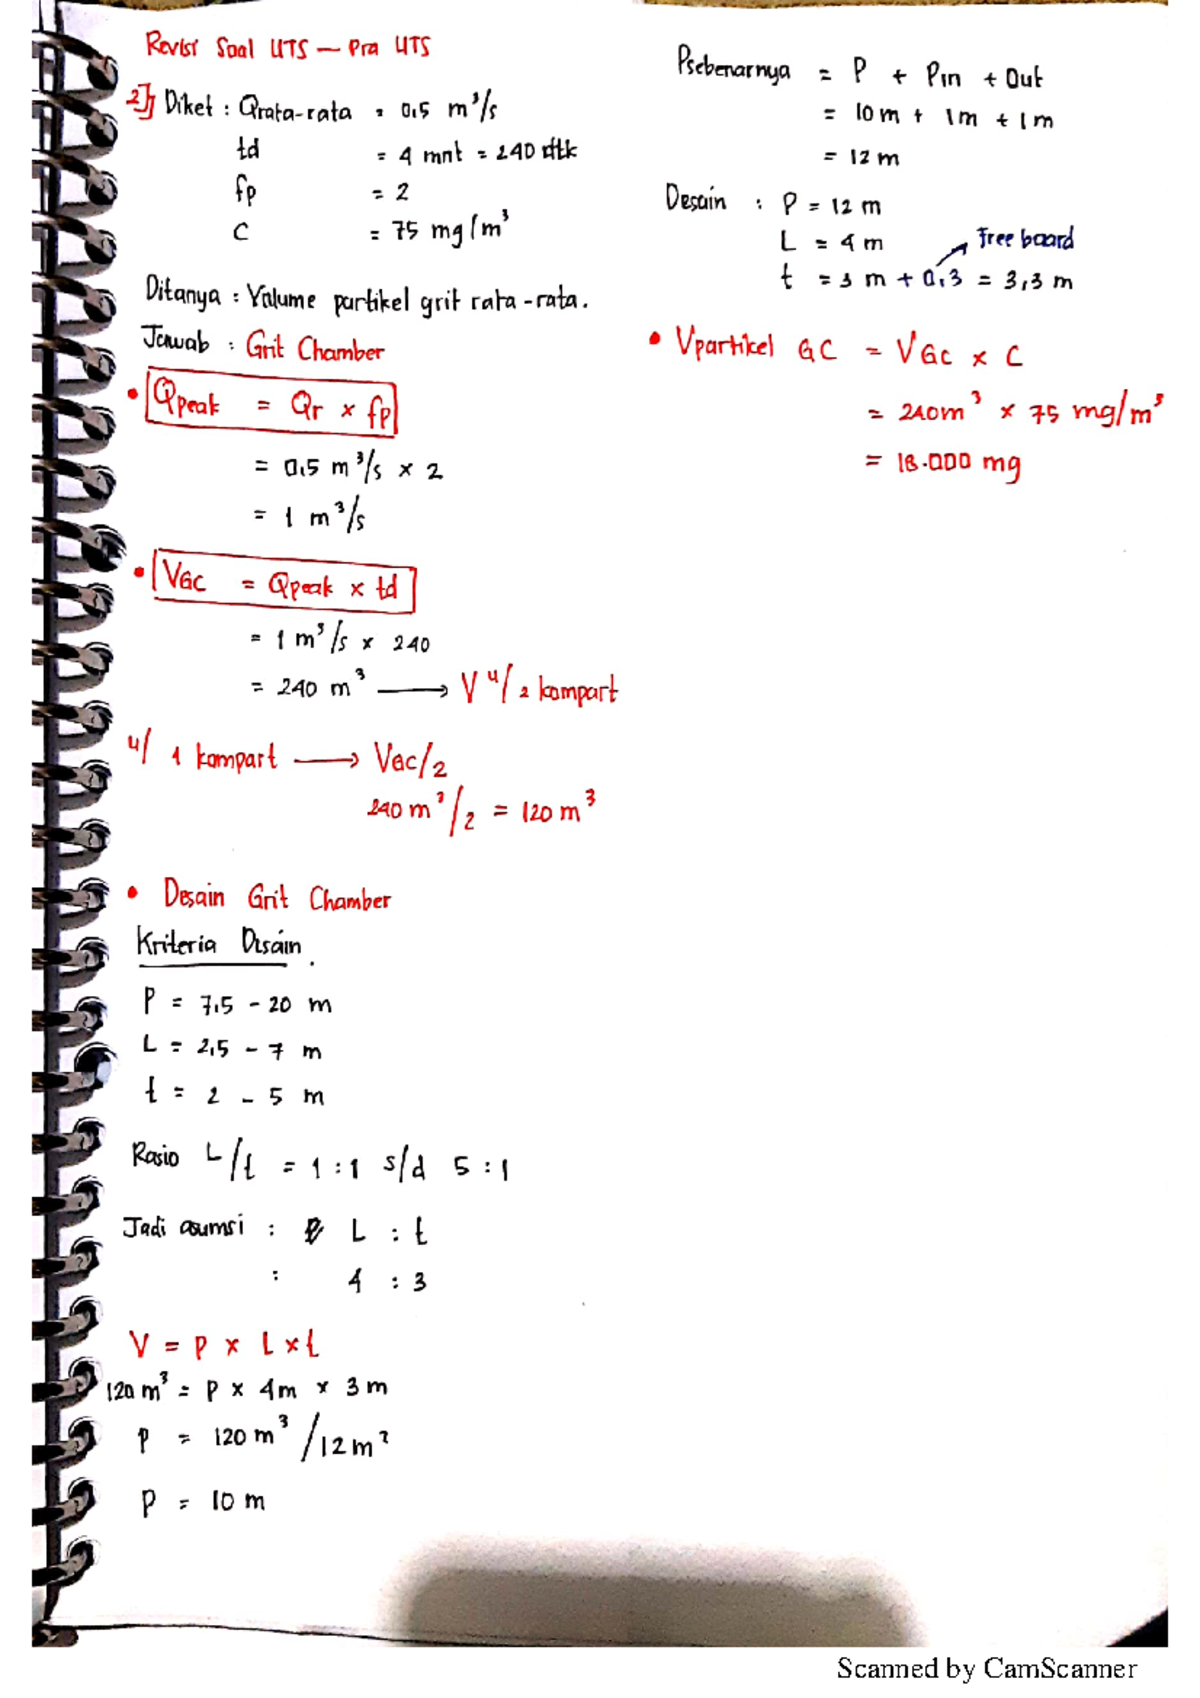 Revisi Soal UTS — Pra UTS
2] Diket : Qrata-rata = 0,5 m³/s
td = 4 mnt = 240 dtk
fp = 2
C = 75 mg/m³
Ditanya : Volume partikel grit rata-rata.
Jawab : Grit Chamber
• Qpeak = Qr x fp
= 0,5 m³/s x 2
= 1 m³/s
• VGC = Qpeak x td
= 1 m³/s x 240
= 240 m³ → V u/ 2 kompart
u/ 1 kompart → VGC/2
240 m³/2 = 120 m³
• Desain Grit Chamber
Kriteria Disain.
P = 7,5 - 20 m
L = 2,5 - 7 m
t = 2 - 5 m
Rasio L/t = 1 : 1 s/d 5 : 1
Jadi asumsi : L : t
: 4 : 3
V = P x L x t
120 m³ = P x 4m x 3m
P = 120 m³/12 m²
P = 10 m
Psebenarnya = P + Pin + Out
= 10m + 1m + 1m
= 12 m
Desain : P = 12 m
L = 4 m
Free board
t = 3 m + 0,3 = 3,3 m
• Vpartikel GC = VGC x C
= 240m³ x 75 mg/m³
= 18.000 mg
Scanned by CamScanner